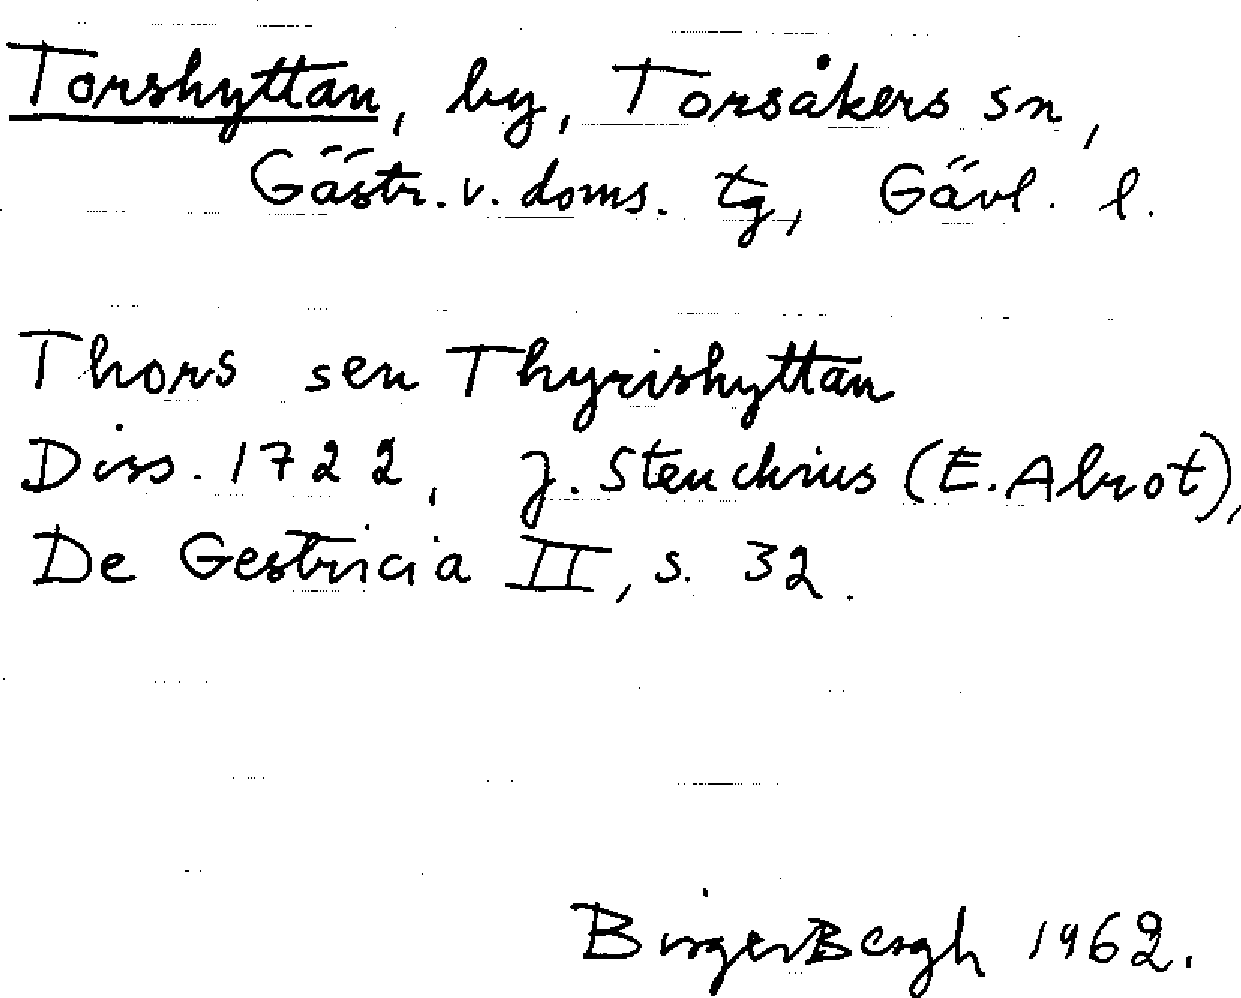 Torshyttan, by, Torsåkers sn,
Gästr. v. doms. tg, Gävl. l.
Thors seu Thyrishyttan
Diss. 1722, J. Steuchius (E. Abrot),
De Gestricia II, s. 32.
Birger Bergh 1962.